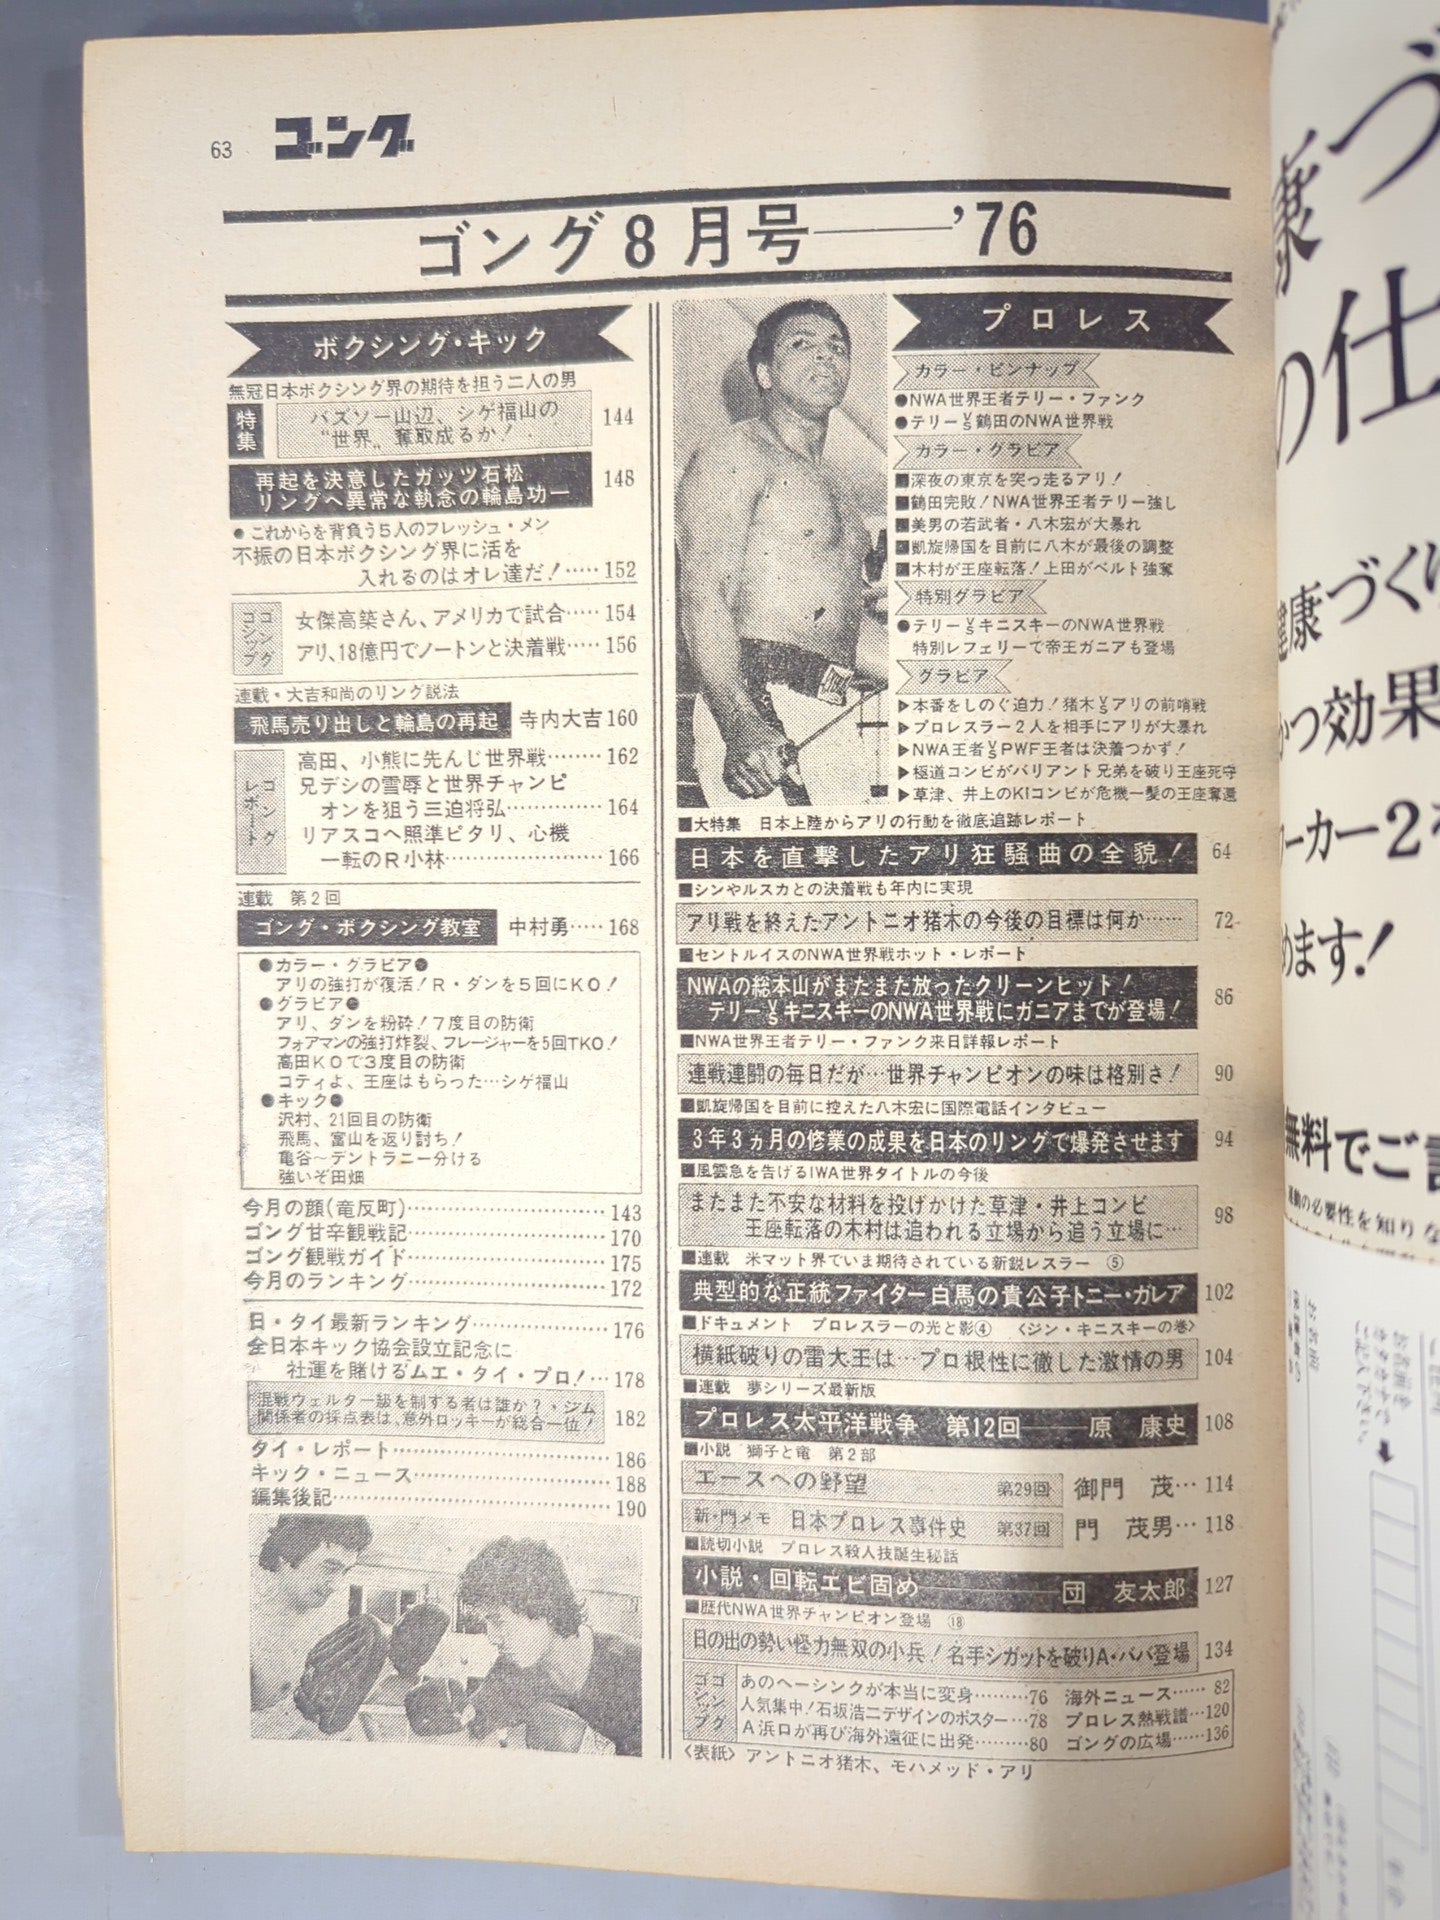 63
ゴング
ゴング8月号——'76
ボクシング・キック
無冠日本ボクシング界の期待を担う二人の男
特集
バズソー山辺、シゲ福山の
“世界”奪取成るか!
144
再起を決意したガッツ石松
リングへ異常な執念の輪島功一
148
●これからを背負う5人のフレッシュ・メン
不振の日本ボクシング界に活を
入れるのはオレ達だ!……152
ゴングゴシップ
女傑高築さん、アメリカで試合……154
アリ、18億円でノートンと決着戦……156
連載・大吉和尚のリング説法
飛馬売り出しと輪島の再起 寺内大吉160
ゴングレポート
高田、小熊に先んじ世界戦………162
兄デシの雪辱と世界チャンピ
オンを狙う三迫将弘…………164
リアスコへ照準ピタリ、心機
一転のR小林…………………166
連載 第2回
ゴング・ボクシング教室 中村勇……168
●カラー・グラビア●
アリの強打が復活!R・ダンを5回にKO!
●グラビア●
アリ、ダンを粉砕!7度目の防衛
フォアマンの強打炸裂、フレージャーを5回TKO!
高田KOで3度目の防衛
コティよ、王座はもらった…シゲ福山
●キック●
沢村、21回目の防衛
飛馬、富山を返り討ち!
亀谷〜デントラニー分ける
強いぞ田畑
今月の顔(竜反町)……………………143
ゴング甘辛観戦記……………………170
ゴング観戦ガイド……………………175
今月のランキング……………………172
日・タイ最新ランキング………………176
全日本キック協会設立記念に
社運を賭けるムエ・タイ・プロ!…178
混戦ウェルター級を制する者は誰か?、ジム
関係者の採点表は、意外ロッキーが総合一位!
182
タイ・レポート…………………………186
キック・ニュース………………………188
編集後記………………………………190
プロレス
カラー・ピンナップ
●NWA世界王者テリー・ファンク
●テリーvs鶴田のNWA世界戦
カラー・グラビア
■深夜の東京を突っ走るアリ!
■鶴田完敗!NWA世界王者テリー強し
■美男の若武者・八木宏が大暴れ
■凱旋帰国を目前に八木が最後の調整
■木村が王座転落!上田がベルト強奪
特別グラビア
●テリーvsキニスキーのNWA世界戦
特別レフェリーで帝王ガニアも登場
グラビア
▶本番をしのぐ迫力!猪木vsアリの前哨戦
▶プロレスラー2人を相手にアリが大暴れ
▶NWA王者vsPWF王者は決着つかず!
▶極道コンビがバリアント兄弟を破り王座死守
▶草津、井上のKIコンビが危機一髪の王座奪還
■大特集 日本上陸からアリの行動を徹底追跡レポート
日本を直撃したアリ狂騒曲の全貌! 64
■シンやルスカとの決着戦も年内に実現
アリ戦を終えたアントニオ猪木の今後の目標は何か…… 72
■セントルイスのNWA世界戦ホット・レポート
NWAの総本山がまたまた放ったクリーンヒット!
テリーvsキニスキーのNWA世界戦にガニアまでが登場!
86
■NWA世界王者テリー・ファンク来日詳報レポート
連戦連闘の毎日だが…世界チャンピオンの味は格別さ! 90
■凱旋帰国を目前に控えた八木宏に国際電話インタビュー
3年3ヵ月の修業の成果を日本のリングで爆発させます 94
■風雲急を告げるIWA世界タイトルの今後
またまた不安な材料を投げかけた草津・井上コンビ
王座転落の木村は追われる立場から追う立場に…
98
■連載 米マット界でいま期待されている新鋭レスラー ⑤
典型的な正統ファイター白馬の貴公子トニー・ガレア 102
■ドキュメント プロレスラーの光と影④ 〈ジン・キニスキーの巻〉
横紙破りの雷大王は…プロ根性に徹した激情の男 104
■連載 夢シリーズ最新版
プロレス太平洋戦争 第12回——原 康史 108
■小説 獅子と竜 第2部
エースへの野望 第29回 御門 茂…114
新・門メモ 日本プロレス事件史 第37回 門 茂男…118
■読切小説 プロレス殺人技誕生秘話
小説・回転エビ固め——団 友太郎 127
■歴代NWA世界チャンピオン登場 ⑱
日の出の勢い怪力無双の小兵!名手シガットを破りA・ババ登場 134
ゴングゴシップ
あのヘーシンクが本当に変身………76 海外ニュース…… 82
人気集中!石坂浩二デザインのポスター…78 プロレス熱戦譜…120
A浜口が再び海外遠征に出発………80 ゴングの広場……136
〈表紙〉アントニオ猪木、モハメッド・アリ
康づ
の仕
健康づくり
かつ効果
ーカー2
めます!
無料でご
運動の必要性を知りな